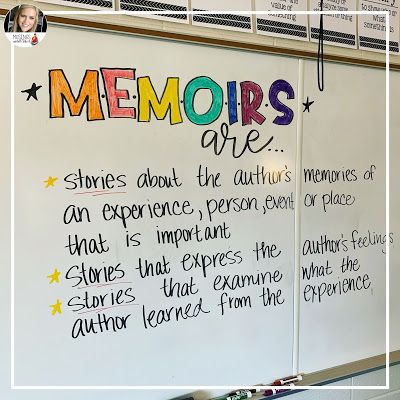 MEMOIRS
are...
stories about the author's memories of
an experience, person, event or place
that is important
Stories that express the author's feelings
Stories that examine what the
author learned from the experience